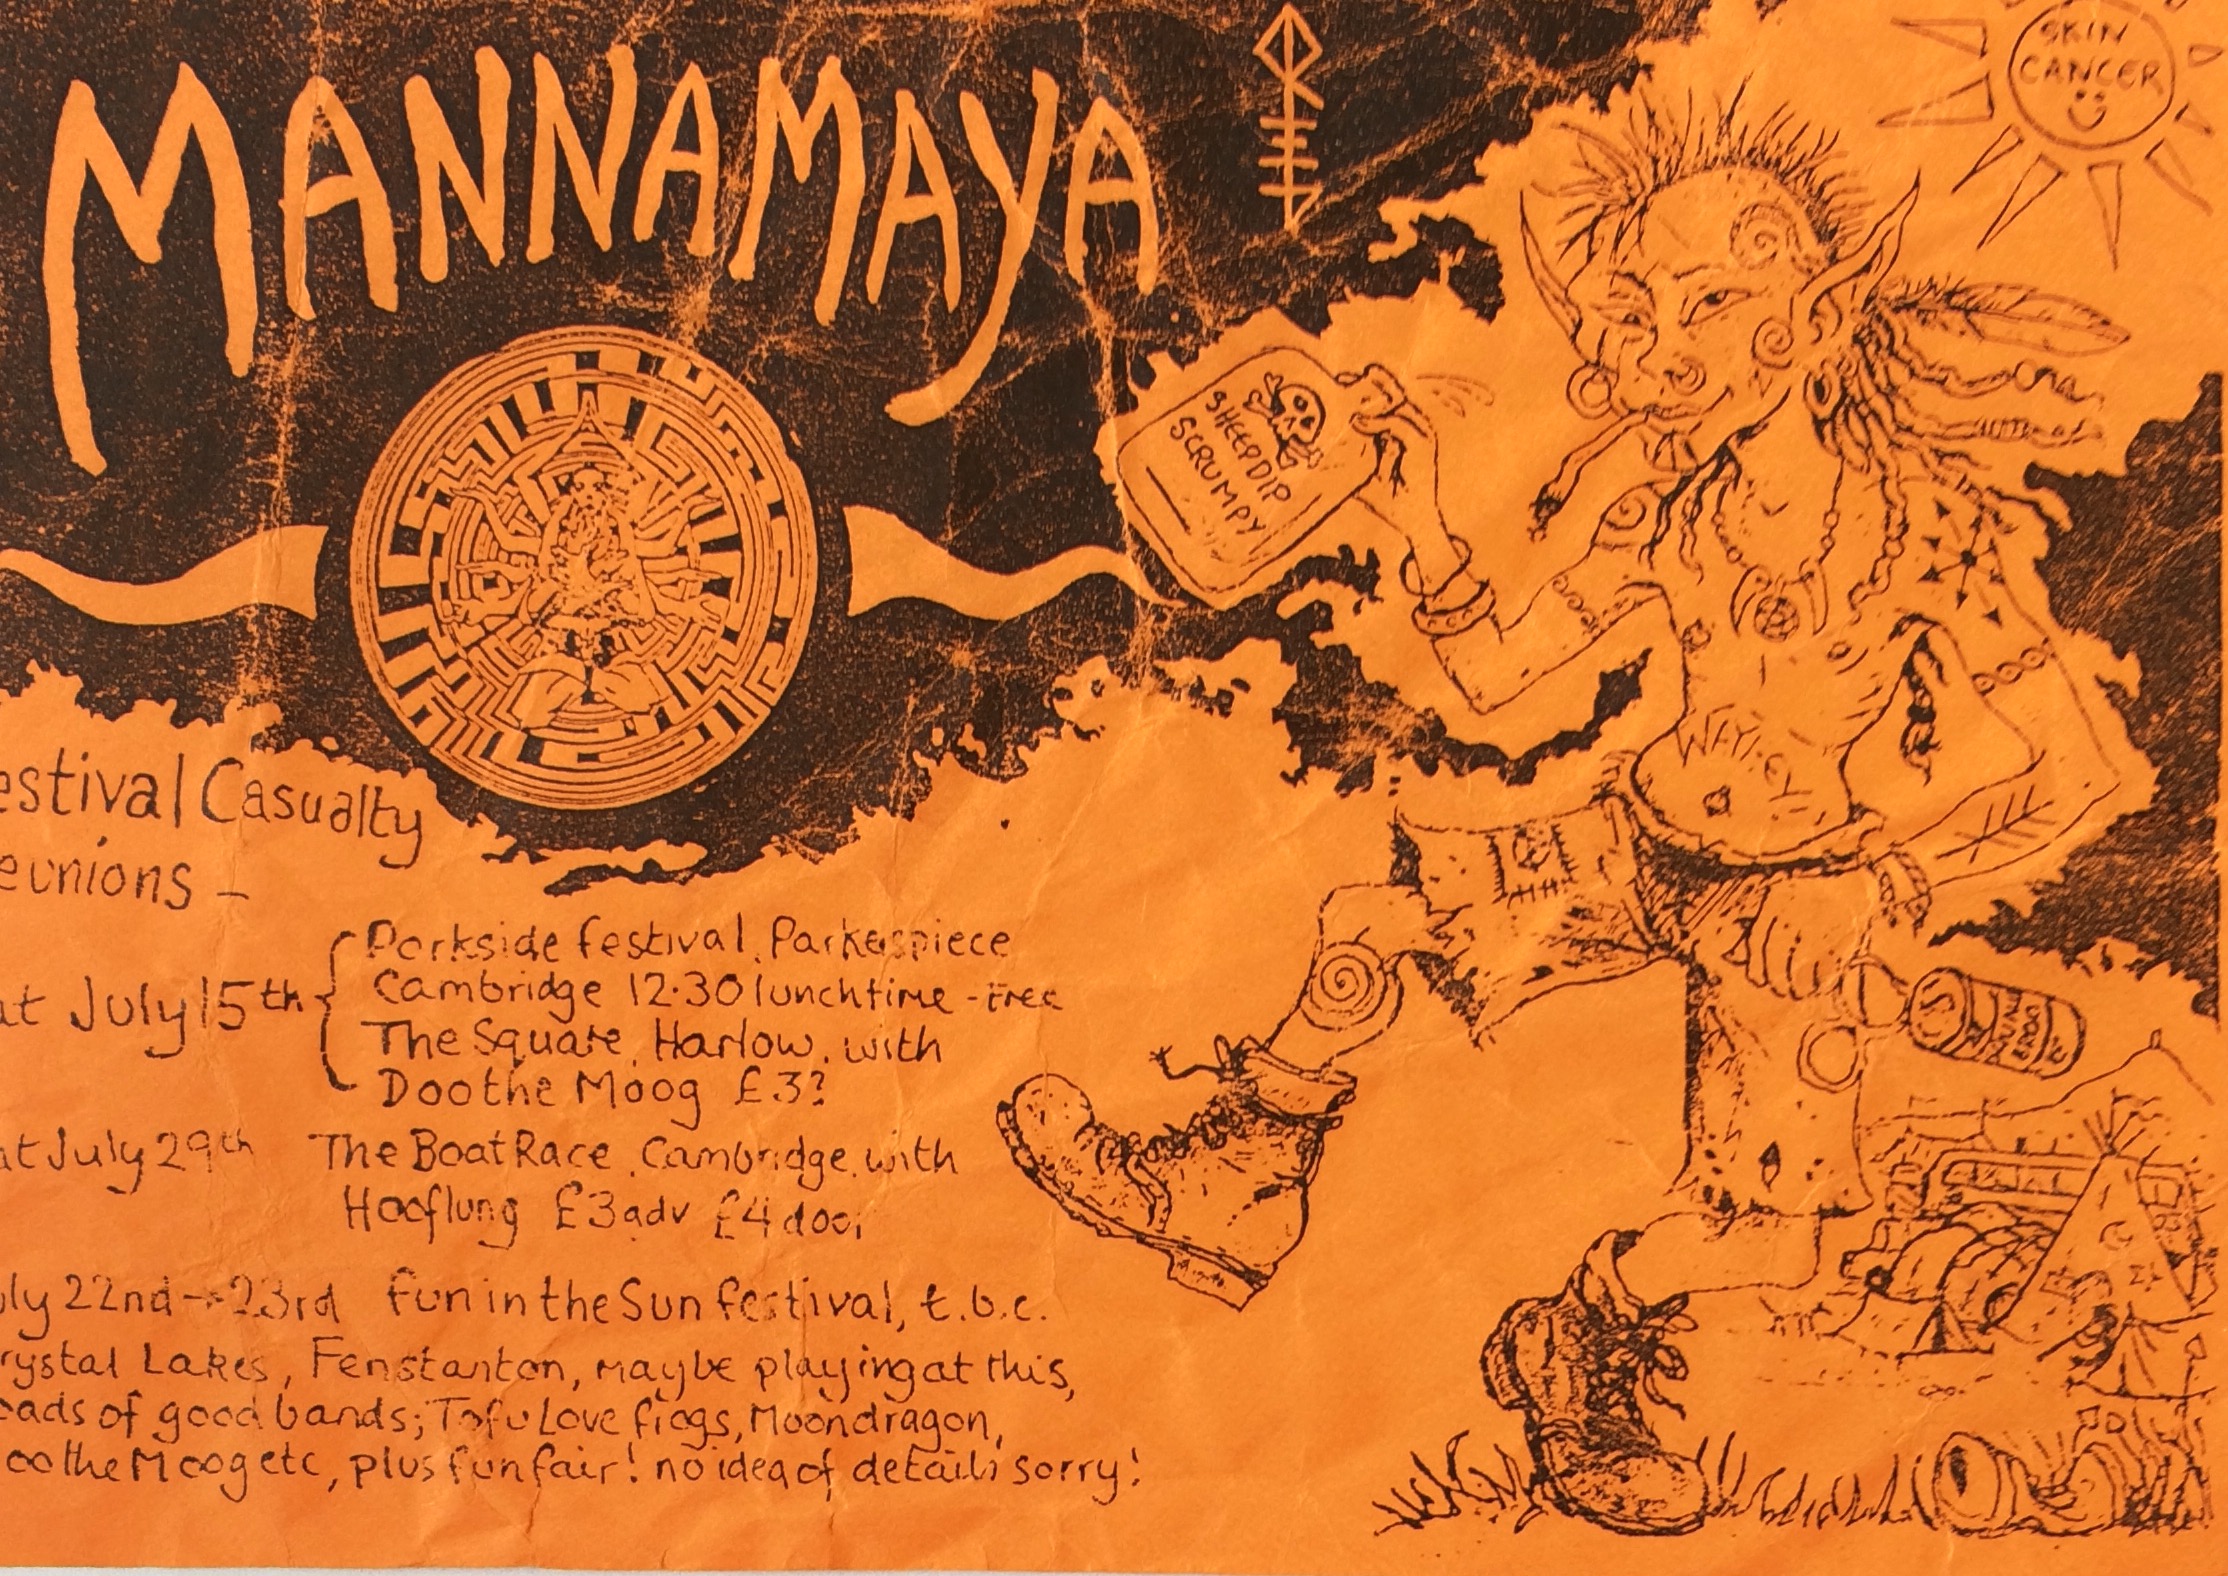 MANNAMAYA
SKIN
CANCER
SHEEPDIP
SCRUMPY
WAY
estival Casualty
eunions -
at July 15th
Parkside festival, Parkerspiece
Cambridge 12.30 lunchtime - free
The Square, Harlow, with
Doo the Moog £3?
at July 29th The Boat Race, Cambridge, with
Hooflung £3 adv £4 door
uly 22nd → 23rd fun in the Sun festival, t.b.c.
rystal Lakes, Fenstanton, maybe playing at this,
oads of good bands; Tofu Love frogs, Moondragon,
oo the Moog etc, plus funfair! no idea of details sorry!